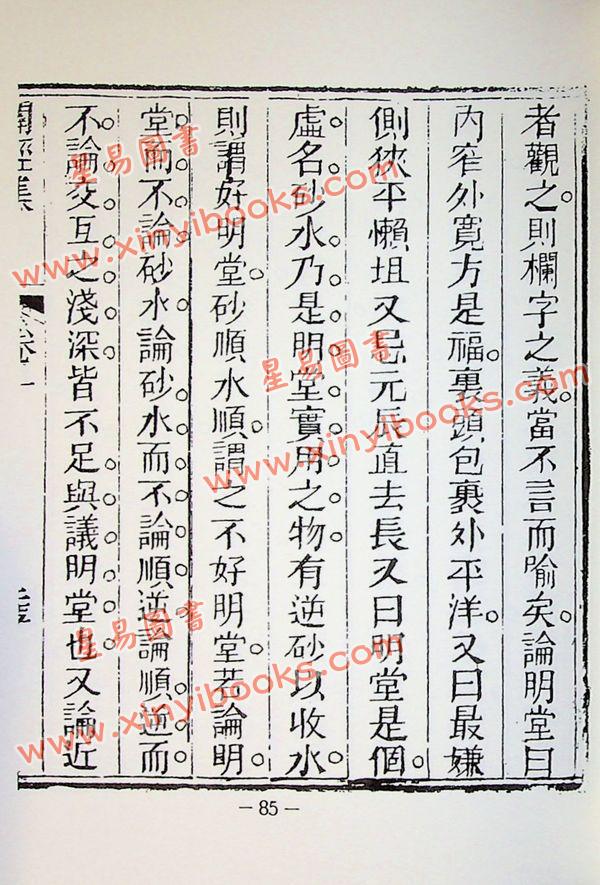 者觀之則欄字之義當不言而喻矣論明堂曰
內窄外寬方是福裏頭包裹外平洋又曰最嫌
側狹平懶坦又忌元辰直去長又曰明堂是個
虛名砂水乃是明堂實用之物有逆砂以收水
則謂好明堂砂順水順謂之不好明堂若論明
堂而不論砂水論砂水而不論順逆論順逆而
不論交互之淺深皆不足與議明堂也又論近
星易圖書
www.xinyibooks.com
星易圖書
www.xinyibooks.com
星易圖書
www.xinyibooks.com
— 85 —